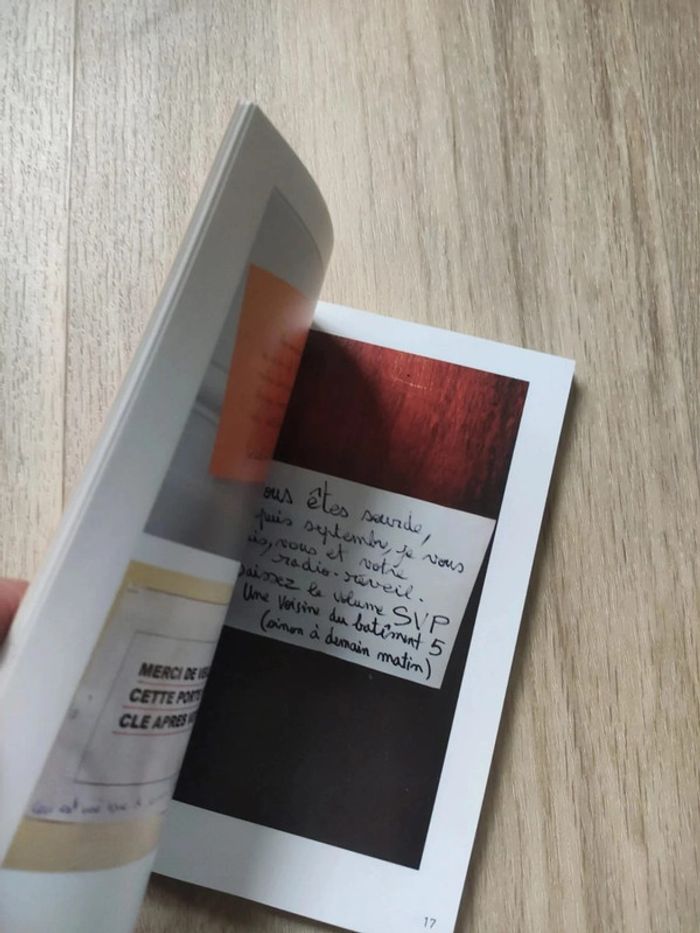 MERCI DE
CETTE PORTE
CLE APRES
ous êtes sourde,
puis septembre, je vous
is, vous et votre
radio-réveil.
baissez le volume SVP
Une Voisine du batîment 5
(sinon à demain matin)
17